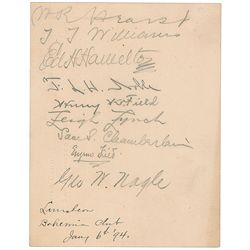 W R Hearst
T. T. Williams
Ed H Hamilton
F. L. H. Noble
Henry Field
Leigh Lynch
Sam S. Chamberlain
Eugene Field
Geo W. Nagle
Luncheon
Bohemia Club
Jany 6th '94.